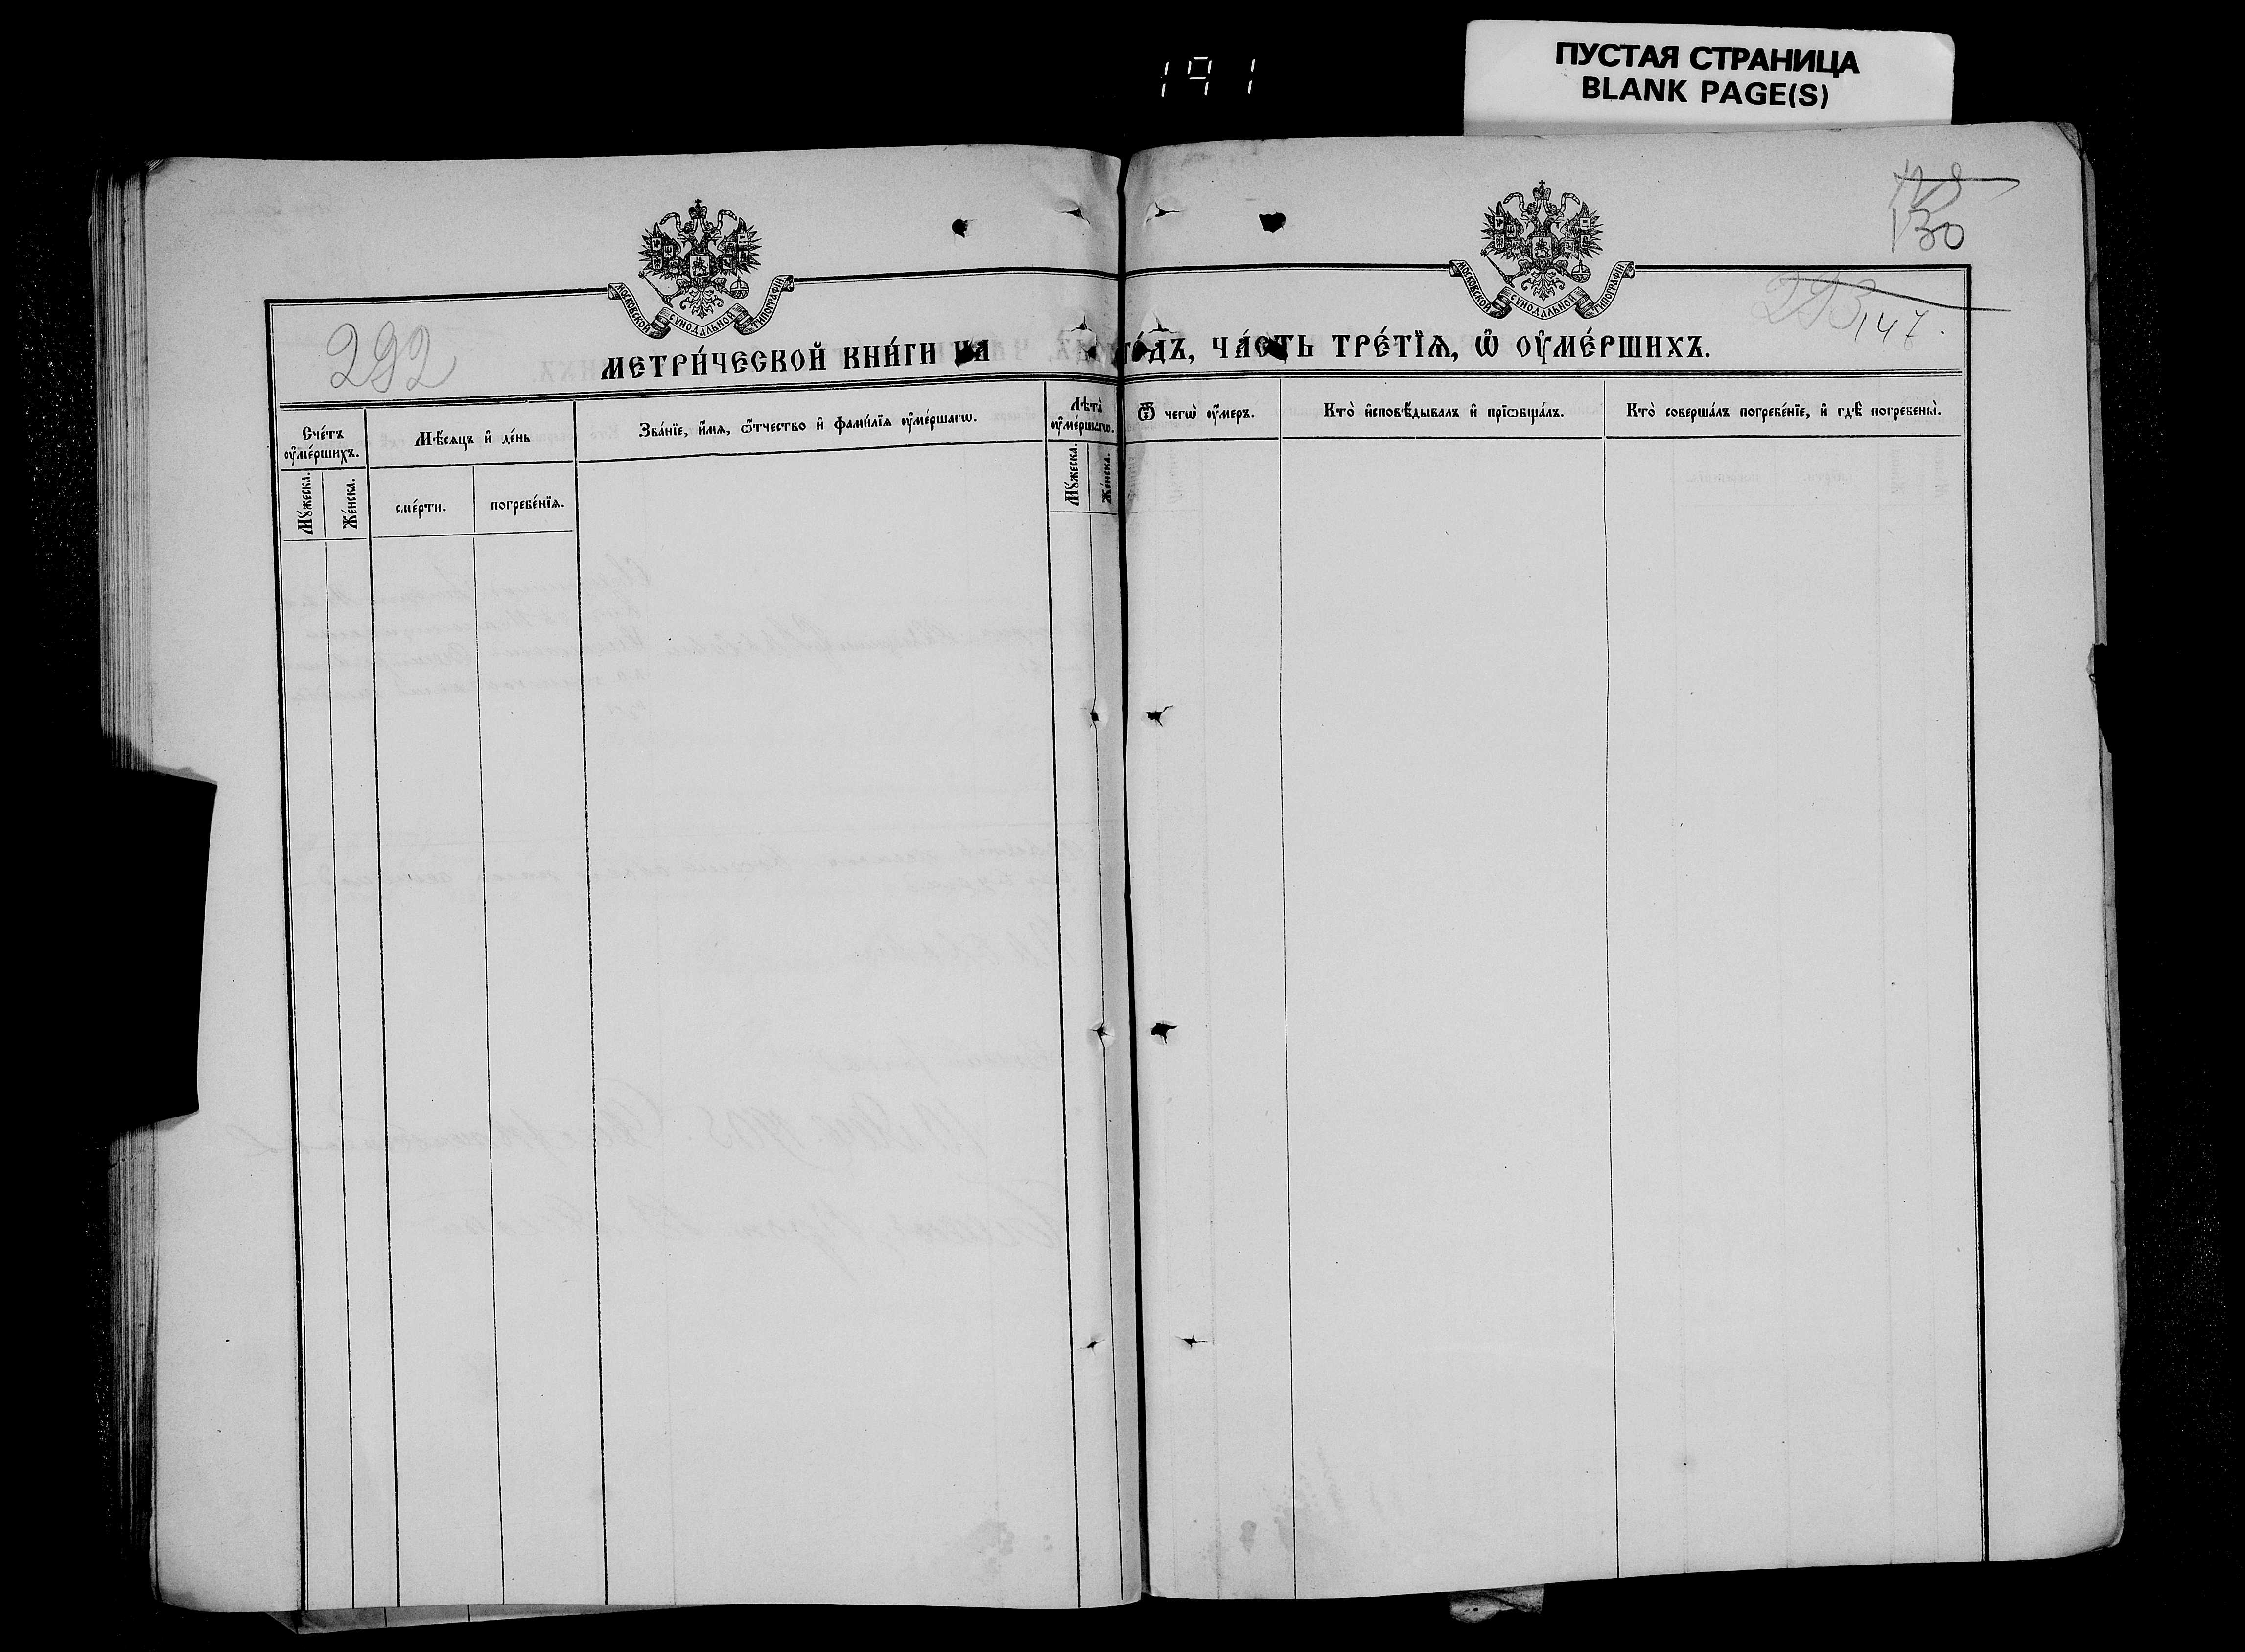 191
ПУСТАЯ СТРАНИЦА
BLANK PAGE(S)
130
МОСКОВСКОЙ СѴНОДАЛЬНОЙ ТИПОГРАФІИ
МОСКОВСКОЙ СѴНОДАЛЬНОЙ ТИПОГРАФІИ
292
293 147.
МЕТРИ́ЧЕСКОЙ КНИ́ГИ НА ГО́ДЪ, ЧА́СТЬ ТРЕ́ТЇѦ, Ѽ ОУ҆МЕ́РШИХЪ.
Сче́тъ оу҆ме́ршихъ.
Мѣ́сѧцъ и҆ де́нь
Зва́нїе, и҆́мѧ, ѻ҆́тчество и҆ фами́лїѧ оу҆ме́ршагѡ.
Лѣта̀ оу҆ме́ршагѡ.
Ѿ чегѡ̀ оу҆́меръ.
Кто̀ и҆сповѣ́дывалъ и҆ прїѡбща́лъ.
Кто̀ соверша́лъ погребе́нїе, и҆ гдѣ̀ погребены̀.
Мꙋ́жеска.
Же́нска.
сме́рти.
погребе́нїѧ.
Мꙋ́жеска.
Же́нска.